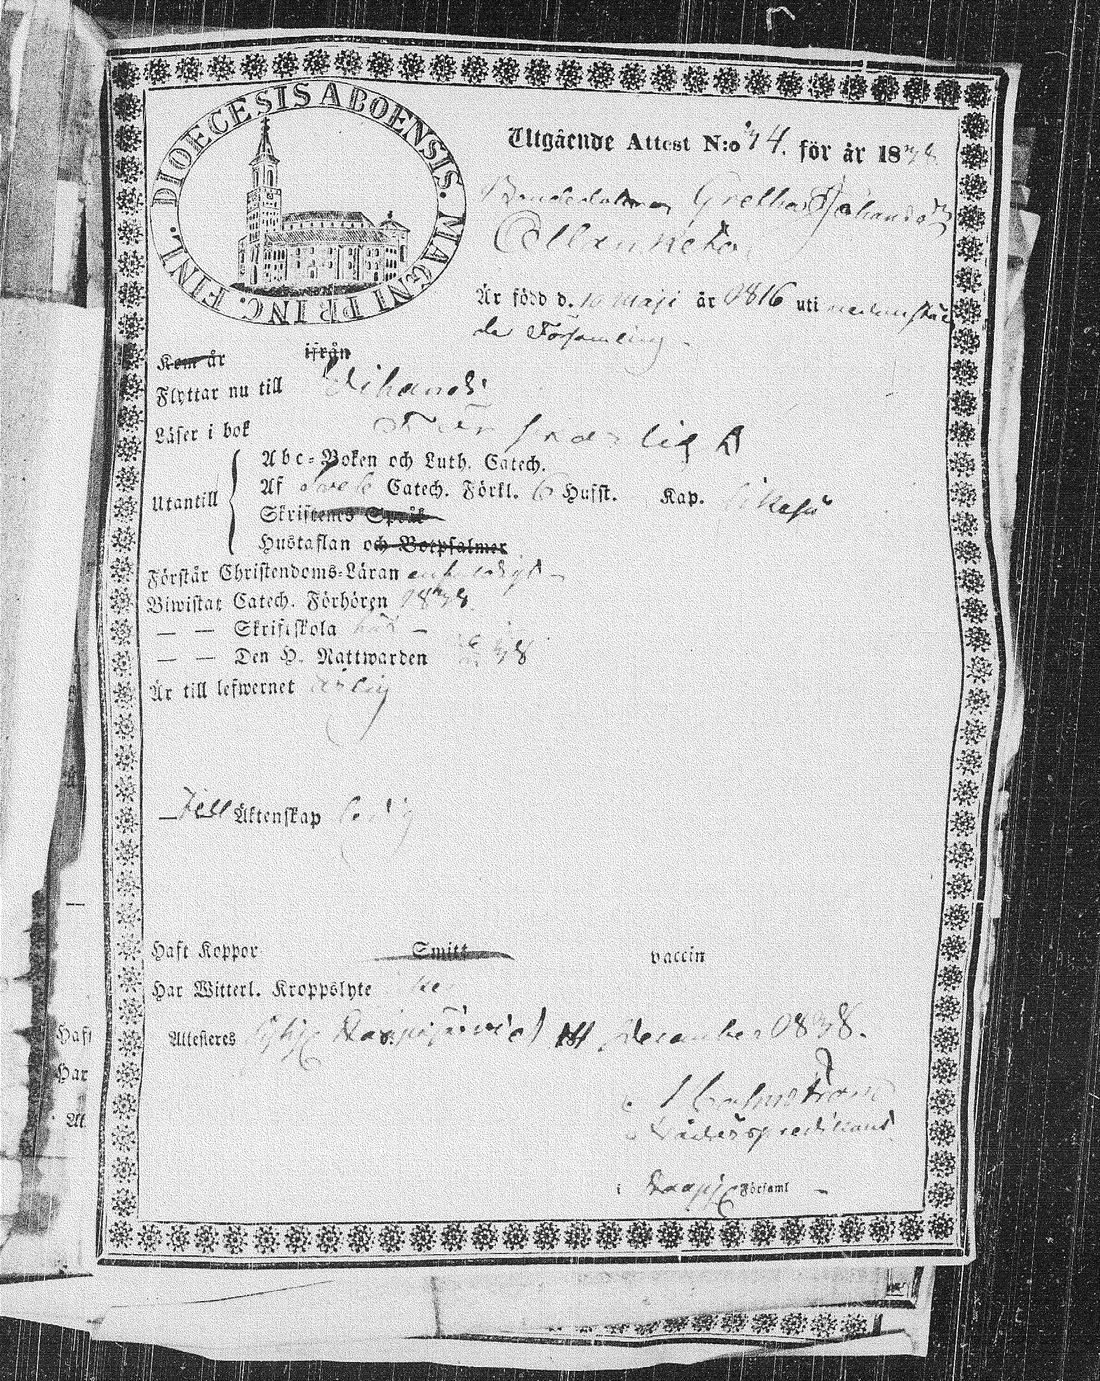 DIOECESIS ABOENSIS. MAGNI PRINC. FINL.
Utgående Attest N:o 34. för år 1838
Bondedottren Gretha Johansdr
Är född d. 10 Maji år 1816 uti nedanståen
de Församling -
Kom år ifrån
Flyttar nu till Sihandi
Läser i bok Försvarligt
Abc-Boken och Luth. Catech.
Utantill Af Svebe Catech. Förkl. 6 Hufst. Kap. likaså
Skriftenes Språk
Hustaflan och Botpsalmer
Förstår Christendoms-Läran enfaldigt -
Biwistat Catech. Förhören 1838
— — Skriftskola här -
— — Den H. Nattwarden 38
Är till lefwernet ärlig
— Till Äktenskap ledig
Haft Koppor Smitt vaccin
Har Witterl. Kroppslyte
Attesteres December 1838.
Holmström
i Församl -
Haft
Har
At